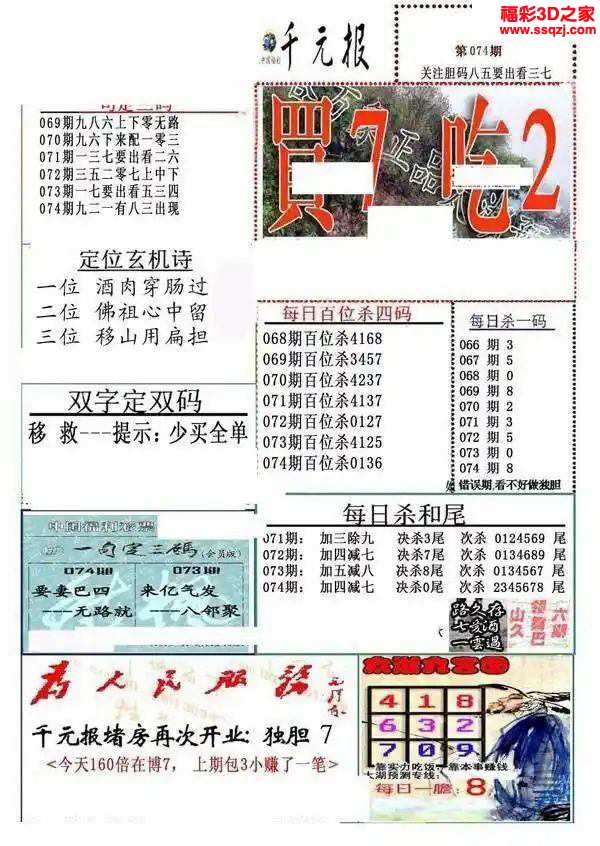 福彩3D之家
www.ssqzj.com
千元报
第074期
关注胆码八五要出看三七
069期九八六上下零无路
070期九六下来配一零三
071期一三七要出看二六
072期三五二零七上中下
073期一七要出看五三四
074期九二一有八三出现
買7吃2
定位玄机诗
一位 酒肉穿肠过
二位 佛祖心中留
三位 移山用扁担
每日百位杀四码
068期百位杀4168
069期百位杀3457
070期百位杀4237
071期百位杀4137
072期百位杀0127
073期百位杀4125
074期百位杀0136
每日杀一码
066 期 3
067 期 5
068 期 0
069 期 8
070 期 2
071 期 3
072 期 5
073 期 0
074 期 8
错误期,看不好做独胆
双字定双码
移 救---提示:少买全单
每日杀和尾
071期: 加三除九 决杀3尾 次杀 0124569 尾
072期: 加四减七 决杀7尾 次杀 0134689 尾
073期: 加五减八 决杀8尾 次杀 0134567 尾
074期: 加四减七 决杀0尾 次杀 2345678 尾
中国福利彩票
一句定三码(会员版)
074期
要妻巴四
---无路就
073期
来亿气发
---八邻聚
为人民服务
千元报堵房再次开业: 独胆 7
<今天160倍在博7, 上期包3小赚了一笔>
4 1 8
6 3 2
7 0 9
靠实力吃饭,靠本事赚钱
大湖预测专线:
每日一胆: 8